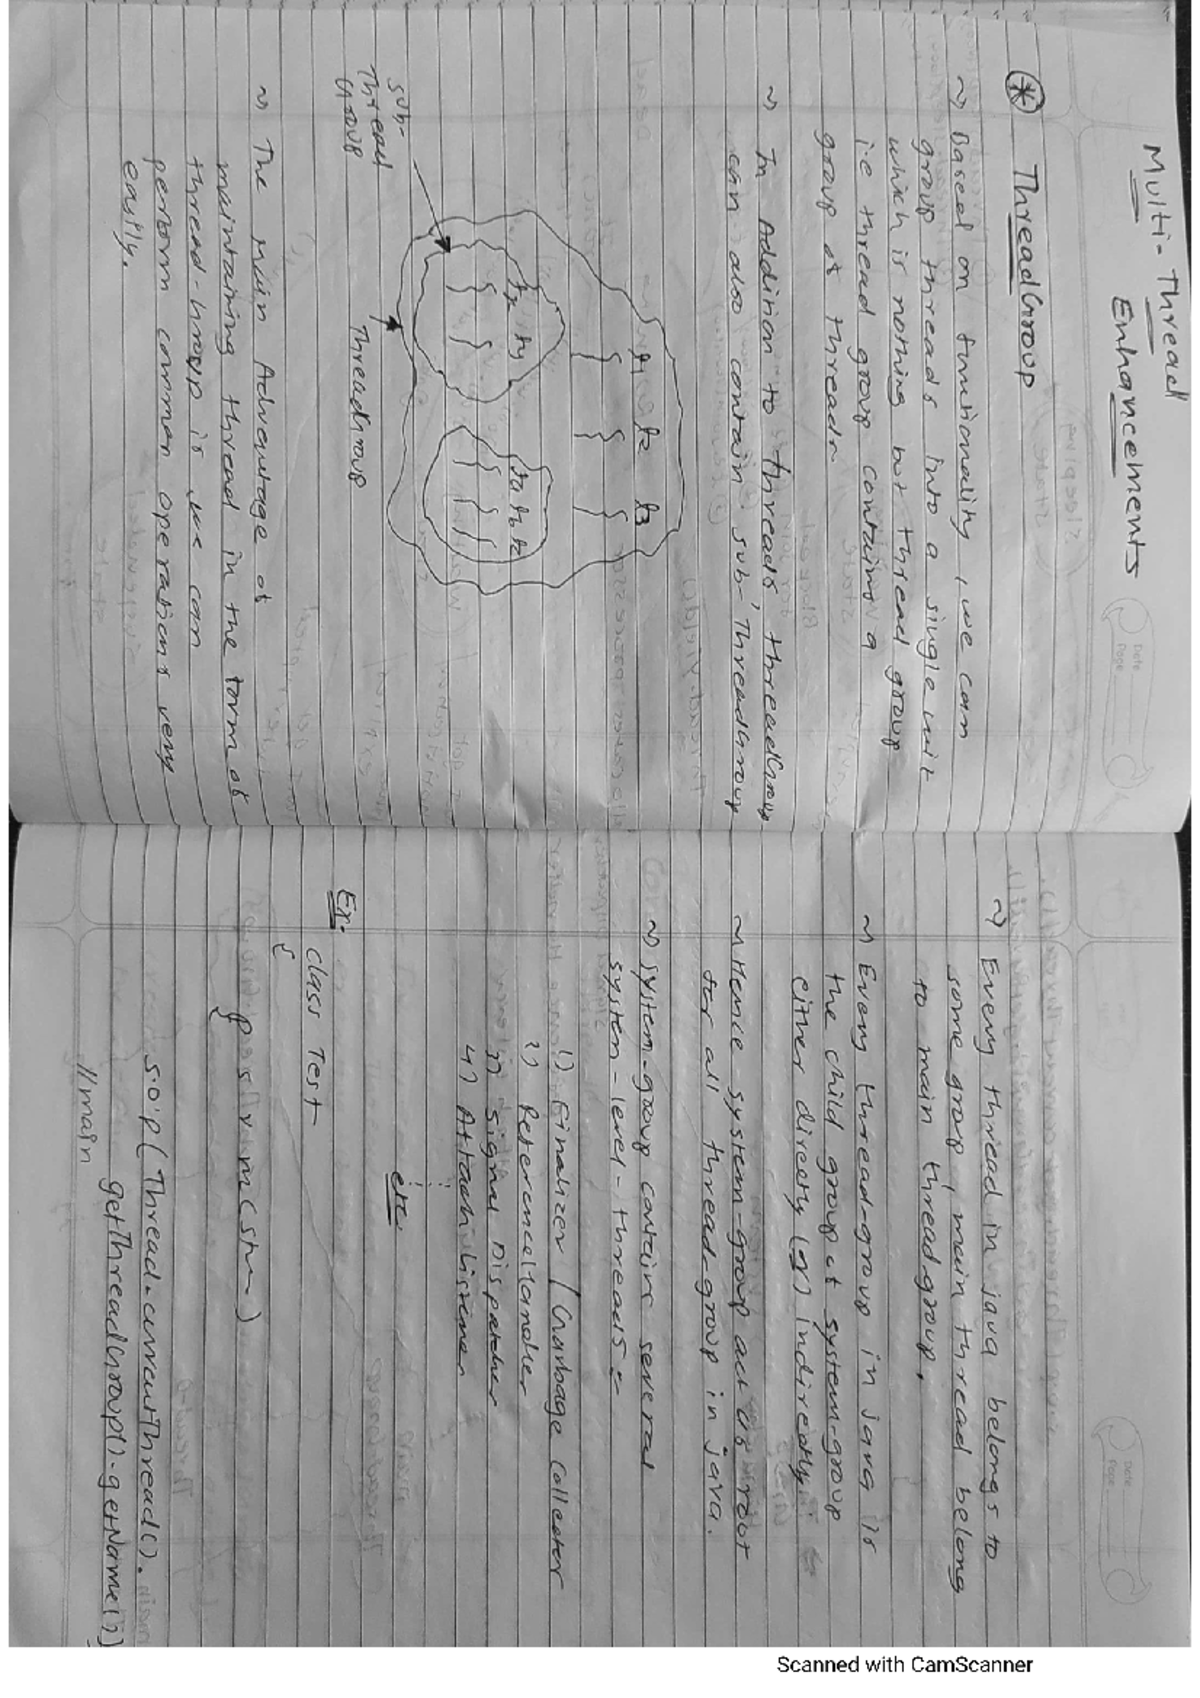 Multi-Thread
Enhancements
Date
Page
* ThreadGroup
~) Based on functionality, we can
group threads into a single unit
which is nothing but thread group
i.e thread group contains a
group of threads
~) In Addition to threads, threadGroup
can also contain sub-ThreadGroup
t1 t2 t3
tx ty
ta tb tc
sub-
Thread
Group
ThreadGroup
~) The main Advantage of
maintaining thread in the form of
thread-group is we can
perform common operations very
easily.
Date
Page
~) Every thread in java belongs to
some group, main thread belong
to main thread group.
~) Every thread-group in java is
the child group of system-group
either directly (or) indirectly
~) Hence system-group act as root
for all thread-group in java.
~) system-group contains several
system-level-threads :-
1) Finalizer / Garbage Collector
2) ReferenceHandler
3) signal Dispatcher
4) Attach Listener
etc.
Ex:-
class Test
{
p s v m (str~)
{
s.o.p(Thread.currentThread().
getThreadGroup().getName());
//main
Scanned with CamScanner